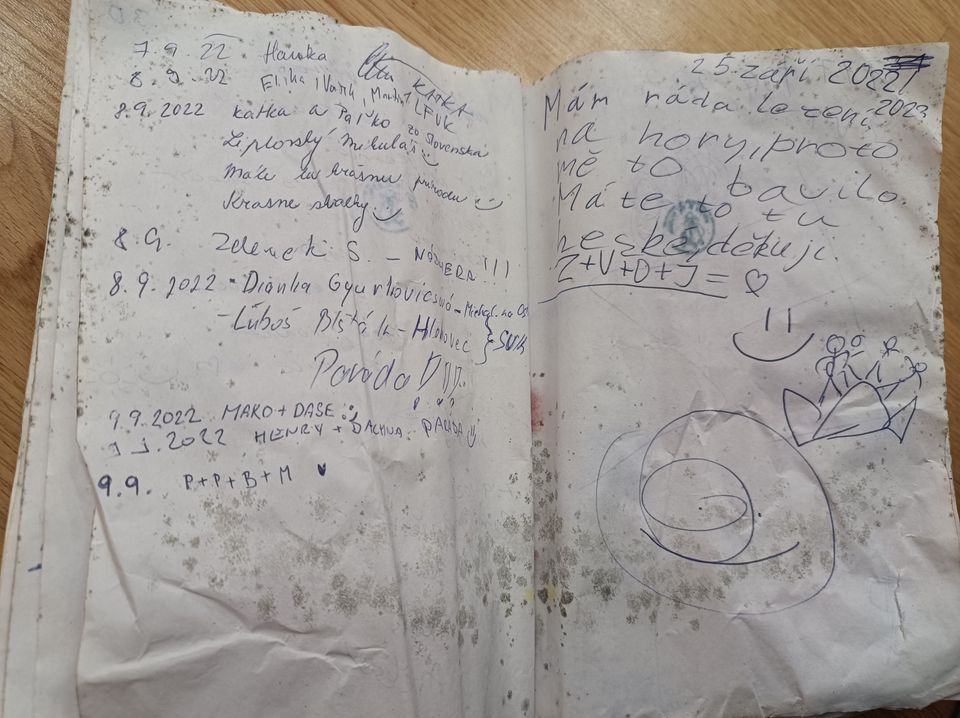 7.9.22 Hanka
8.9.22 Elika, Katka
8.9.2022 Katka a Paľko zo Slovenska
Liptovský Mikuláš
máte tu krásnu prírodu
Krásne skalky
8.9. Zdenek S. – NÁDHERA !!!
8.9.2022 - Dianka
- Ľuboš – Hlohovec } SVK
Paráda !!!
9.9.2022 MAKO + DASE
9.9.2022 HENRY + PARÁDA
9.9. P+P+B+M
25 září 2022
2023
Mám ráda lezení
na hory, proto
mě to bavilo.
Máte to tu
heské, děkuji.
Z+V+D+J =